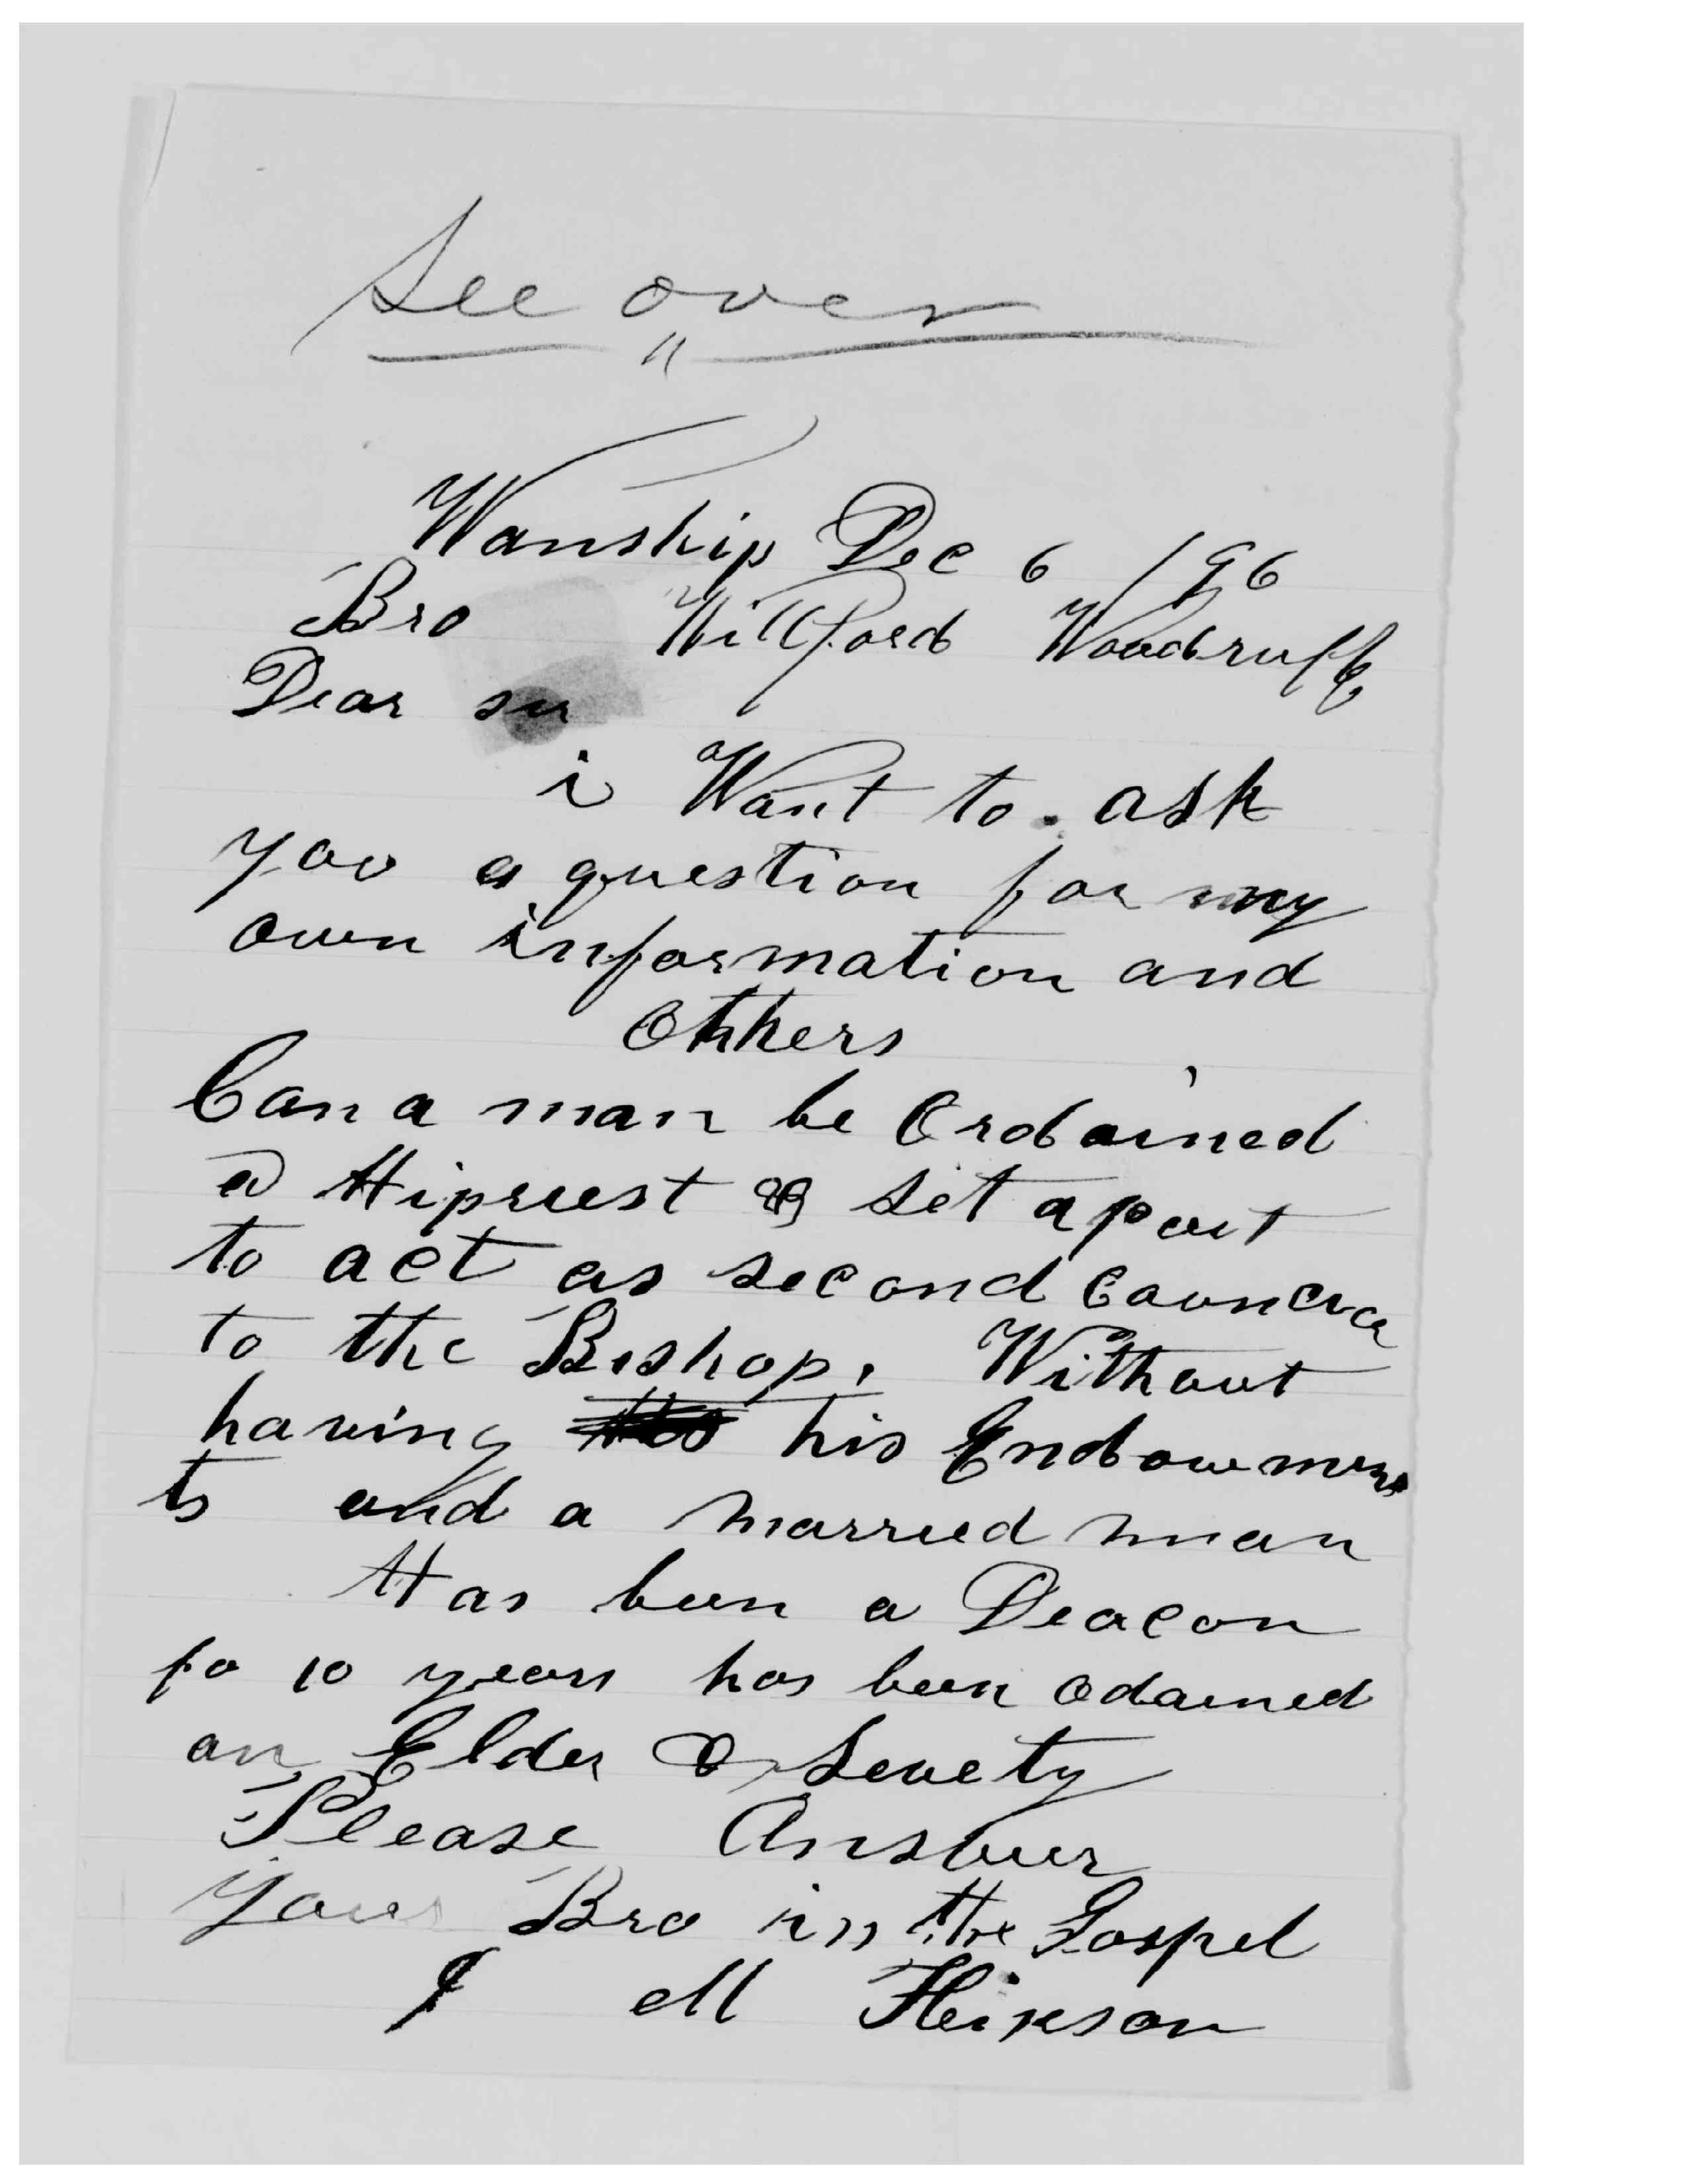 See over
"
Wanship Dec 6 /96
Bro Willford Woodruff
Dear sir
i Want to ask
yoo a question for my
own information and
Othhers
Can a man be Ordained
a Hipriest & set apart
to act as second
to the Bishop, Without
having his Endowmen
ts and a married man
Has been a Deacon
fo 10 years has been odained
an Elder & Sevety
Please Answer
Your Bro in the Gospel
J M